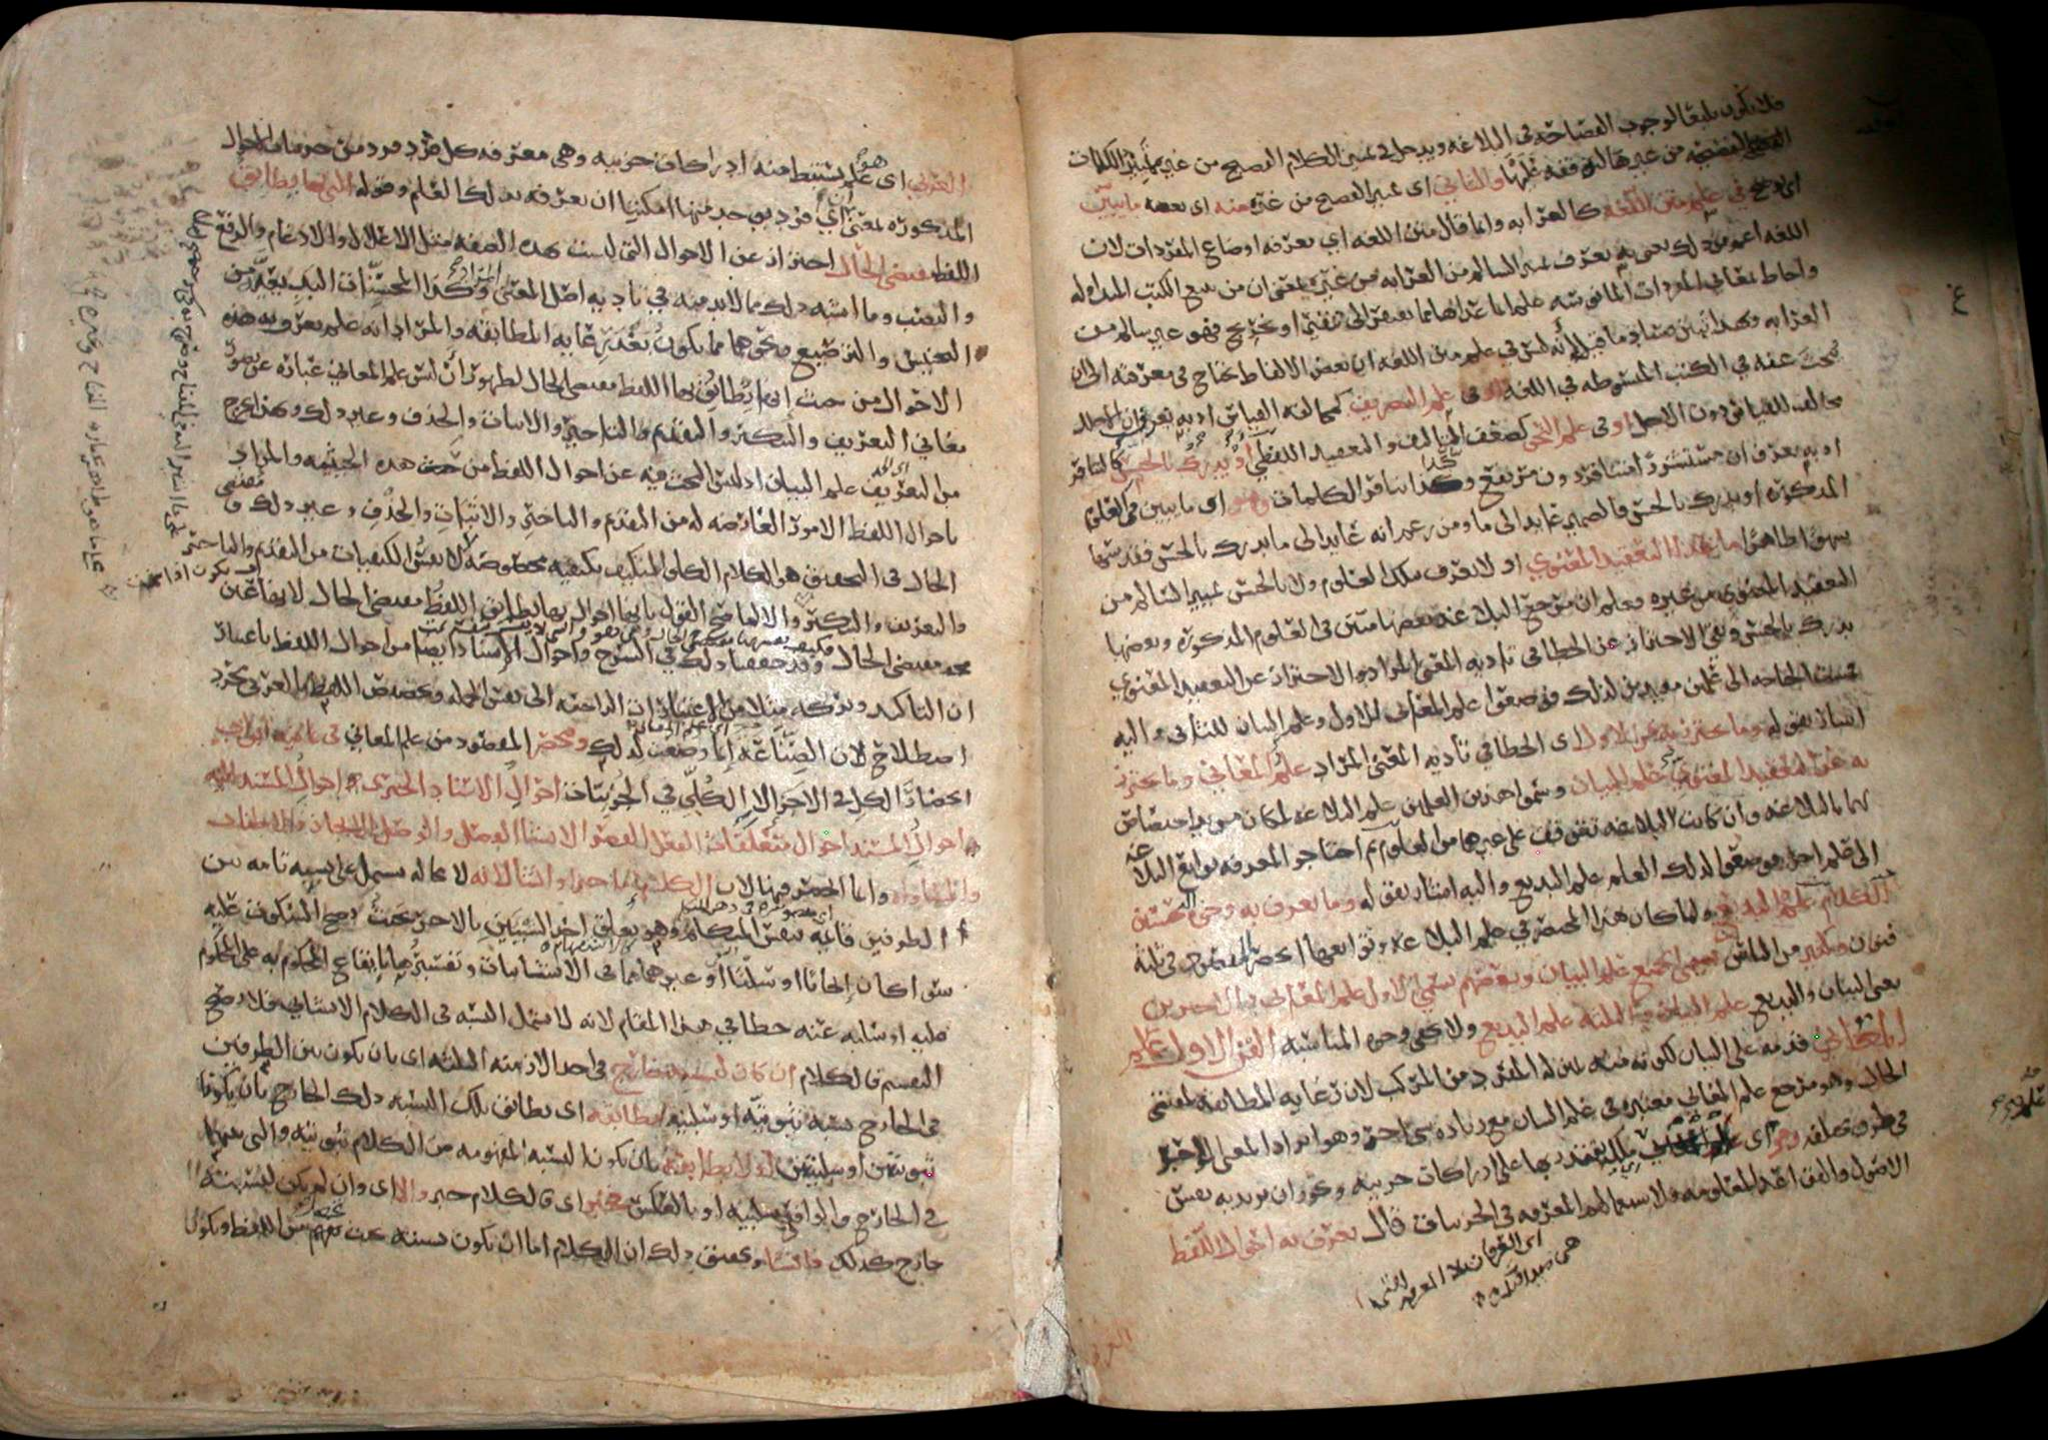 فلا يكون بليغا لوجوب الفصاحة في البلاغة ويدخل في تمييز الكلام الفصيح من غيره تمييز الكلمات
الفصيحة من غيرها لتوقفه عليها والثاني اي تمييز الفصيح من غيره منه اي بعضه ما يبين
اي يوضح في علم متن اللغة كالغرابة وانما قال متن اللغة اي معرفة اوضاع المفردات لان
اللغة اعم من ذلك يعني به يعرف تمييز السالم من الغرابة من غيره بمعنى ان من تتبع الكتب المتداولة
واحاط بمعاني المفردات المانوسة علم ان ما عداها مما يفتقر الى تنقير او تخريج فهو غير سالم من
الغرابة وبهذا تبين فساد ما قيل انه ليس في علم متن اللغة ان بعض الالفاظ يحتاج في معرفته الى ان
يبحث عنه في الكتب المبسوطة في اللغة او في علم التصريف كمخالفة القياس اذ به يعرف ان الاجلل
مخالف للقياس دون الاجل او في علم النحو كضعف التاليف والتعقيد اللفظي او يدرك بالحس كالتنافر
اذ به يعرف ان مستشزرا متنافر دون مرتفع وكذا تنافر الكلمات وهو اي ما يبين في العلوم
المذكورة او يدرك بالحس فالضمير عايد الى ما ومن زعم انه عايد الى ما يدرك بالحس فقد سها
سهوا ظاهرا ما عدا التعقيد المعنوي اذ لا يعرف بتلك العلوم ولا بالحس تمييز السالم من
التعقيد المعنوي من غيره فعلم ان مرجع البلاغة بعضها مبين في العلوم المذكورة وبعضها
يدرك بالحس وبقي الاحتراز عن الخطا في تادية المعنى المراد والاحتراز عن التعقيد المعنوي
فمست الحاجة الى علمين مفيدين لذلك فوضعوا علم المعاني للاول وعلم البيان للثاني واليه
اشار بقوله وما يحترز به عن الاول اي الخطا في تادية المعنى المراد علم المعاني وما يحترز
به عن التعقيد المعنوي علم البيان وسموا هذين العلمين علم البلاغة لمكان مزيد اختصاص
لهما بالبلاغة وان كانت البلاغة تتوقف على غيرهما من العلوم ثم احتاجوا لمعرفة توابع البلاغة
الى علم اخر فوضعوا لذلك العلم علم البديع واليه اشار بقوله وما يعرف به وجوه التحسين
الكلام علم البديع ولما كان هذا المختصر في علم البلاغة وتوابعها انحصر المقصود في ثلثة
فنون وكثير من الناس يسمي الجميع علم البيان وبعضهم يسمي الاول علم المعاني والاخيرين
يعني البيان والبديع علم البيان والثلثة علم البديع ولا يخفى وجوه المناسبة الفن الاول علم
المعاني قدمه على البيان لكونه منه بمنزلة المفرد من المركب لان رعاية المطابقة لمقتضى
الحال وهو مرجع علم المعاني معتبرة في علم البيان مع زيادة شي اخر وهو ايراد المعنى الواحد
في طرق مختلفة وهو اي علم المعاني ملكة يقتدر بها على ادراكات جزيية ويجوز ان يريد به نفس
الاصول والقواعد المعلومة ولاستعمالهم المعرفة في الجزييات قال يعرف به احوال اللفظ
العربي
العربي اي هو علم يستنبط منه ادراكات جزيية وهي معرفة كل فرد فرد من جزييات الاحوال
المذكورة بمعنى ان اي فرد يوجد منها امكننا ان نعرفه بذلك العلم وقوله التي بها يطابق
اللفظ مقتضى الحال احتراز عن الاحوال التي ليست بهذه الصفة مثل الاعلال والادغام والرفع
والنصب وما اشبه ذلك مما لا بد منه في تادية اصل المعنى وكذا المحسنات البديعية من
التجنيس والترصيع ونحوهما مما يكون بعد رعاية المطابقة والمراد انه علم يعرف به هذه
الاحوال من حيث انها يطابق بها اللفظ مقتضى الحال لظهور ان ليس علم المعاني عبارة عن تصور
معاني التعريف والتنكير والتقديم والتاخير والاثبات والحذف وغير ذلك وبهذا يخرج
من التعريف علم البيان اذ ليس البحث فيه عن احوال اللفظ من حيث هذه الحيثية والمراد
باحوال اللفظ الامور العارضة له من التقديم والتاخير والاثبات والحذف وغير ذلك ومقتضى
الحال في التحقيق هو الكلام الكلي المتكيف بكيفية مخصوصة لا نفس الكيفيات من التقديم والتاخير
والتعريف والتنكير والا لما صح القول بانها احوال بها يطابق اللفظ مقتضى الحال لانها عين
مقتضى الحال وقد حققنا ذلك في الشرح واحوال الاسناد ايضا من احوال اللفظ باعتبار
ان التاكيد وتركه مثلا من الاعتبارات الراجعة الى نفس الجملة وتخصيص اللفظ بالعربي مجرد
اصطلاح لان الصناعة انما وضعت لذلك وينحصر المقصود من علم المعاني في ثمانية ابواب
انحصار الكل في الاجزا لا الكلي في الجزييات احوال الاسناد الخبري احوال المسند اليه
احوال المسند احوال متعلقات الفعل القصر الانشا الفصل والوصل الايجاز والاطناب
والمساواة وانما انحصر فيها لان الكلام اما خبر او انشا لانه لا محالة يشتمل على نسبة تامة بين
الطرفين قايمة بنفس المتكلم وهو تعلق احد الشيئين بالاخر بحيث يصح السكوت عليه
سوا كان ايجابا او سلبا او غيرهما كما في الانشاييات وتفسيرها بايقاع المحكوم به على المحكوم
عليه او سلبه عنه خطا في هذا المقام لانه لا يشمل النسبة في الكلام الانشايي فلا يصح
التقسيم فالكلام ان كان لنسبته خارج في احد الازمنة الثلثة اي بان يكون بين الطرفين
في الخارج نسبة ثبوتية او سلبية تطابقه اي يطابق تلك النسبة ذلك الخارج بان يكونا
ثبوتيتين او سلبيتين او لا تطابقه بان يكون النسبة المفهومة من الكلام ثبوتية والتي بينهما
في الخارج والواقع سلبية او بالعكس فخبر اي فالكلام خبر والا اي وان لم يكن لنسبته
خارج كذلك فانشا وتحقيق ذلك ان الكلام اما ان يكون نسبته بحيث تفهم من اللفظ ويكون